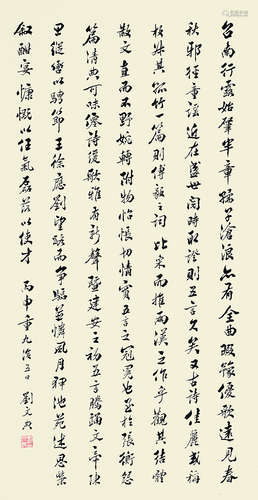 召南行露始肇半章孺子滄浪亦有全曲暇豫優歌遠見春
秋邪徑童謠近在盛世閱時取證則五言久矣又古詩佳麗或稱
枚叔其孤竹一篇則傅毅之詞比采而推兩漢之作乎觀其結體
散文直而不野婉轉附物怊悵切情實五言之冠冕也至於張衡怨
篇清典可味僊詩緩歌雅有新聲暨建安之初五言騰踊文帝陳
思縱轡以騁節王徐應劉望路而爭驅並憐風月狎池苑述恩榮
敘酣宴慷慨以任氣磊落以使才 丙申重九 劉文典